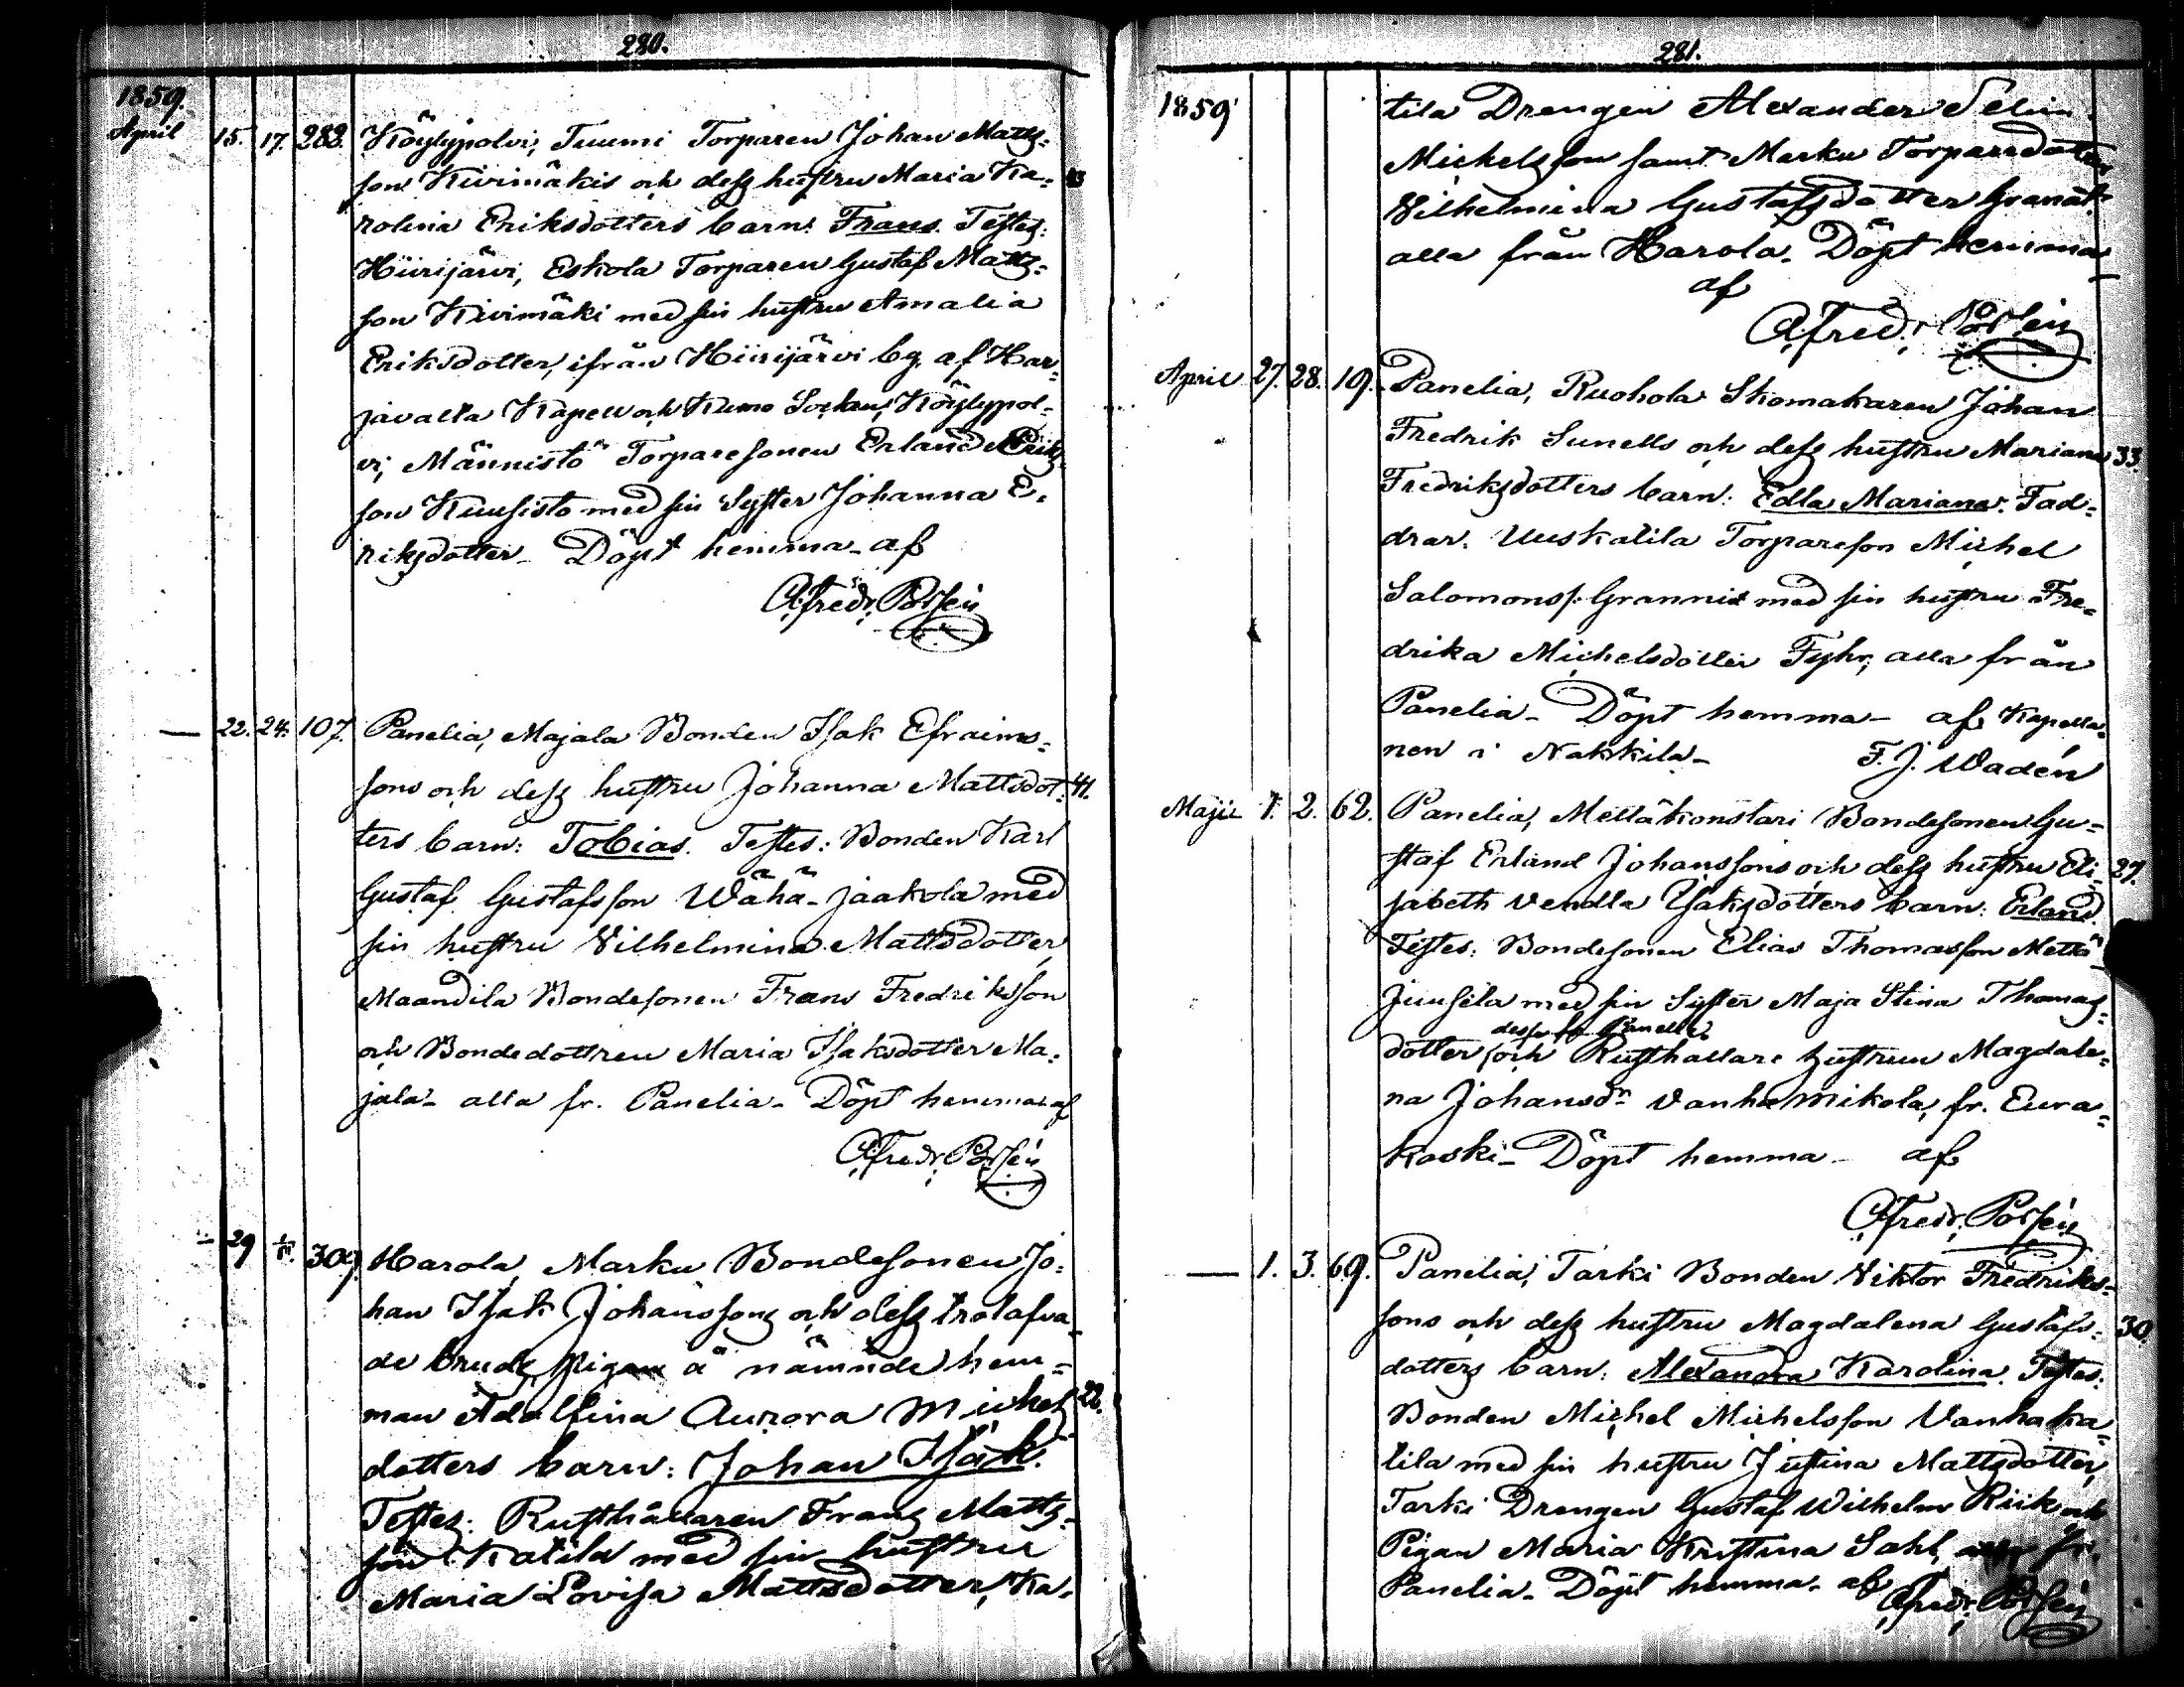 280.
1859.
April 15. 17. 282. Köylypolvi, Tuumi Torparen Johan Matts=
sons Kivimäkis och dess hustru Maria Ka= 43
rolina Eriksdotters barn: Frans. Testes:
Hiirijärvi, Eskola Torparen Gustaf Matts=
son Kivimäki med sin hustru Amalia
Eriksdotter, ifrån Hiirijärvi bg. af Har=
javalta Kapell och Kumo Socken, Köylypol=
vi, Männistö Torparesonen Erland Eriks
son Kuusisto med sin Syster Johanna E=
riksdotter_ Döpt hemma_ af
A. Fredr. Porsén
— 22. 24. 107. Panelia, Majala Bonden Isak Efraims=
sons och dess hustru Johanna Mattsdot= 41.
ters barn: Tobias. Testes: Bonden Karl
Gustaf Gustafsson Wähä-Jaakola med
sin hustru Vilhelmina Mattsdotter,
Maandila Bondesonen Frans Fredriksson
och Bondedottren Maria Isaksdotter Ma=
jala_ alla fr. Panelia_ Döpt hemma af
A. Fredr. Porsén
— 29 309. Harola, Marku Bondesonen Jo=
han Isak Johanssons och dess trolofva=
de brud, Pigan å nämnde hem=
man Adolfina Aurora Michels 22.
dotters barn: Johan Isak.
Testes: Rusthållaren Frans Matts=
son Katila med sin hustru
Maria Lovisa Mattsdotter, Ka=
281.
1859
tila Drengen Alexander Selim
Michelsson samt Marku Torparedottern
Vilhelmina Gustafsdotter Granat
alla från Harola. Döpt hemma
af
A. Fredr. Porsén
April 27. 28. 19. Panelia, Ruohola Skomakaren Johan
Fredrik Sunells och dess hustru Mariana 33.
Fredriksdotters barn: Edla Mariana. Fad=
drar: Uuskalila Torpareson Michel
Salomons: Grannis med sin hustru Fre=
drika Michelsdotter Fyhr, alla från
Panelia_ Döpt hemma_ af Kapella=
nen i Nakkila_ F. J. Wadén
Maji 1. 2. 62. Panelia, Mettäkonstari Bondesonen Gu=
staf Erland Johanssons och dess hustru Eli= 27.
sabeth Vendla Isaksdotters barn: Erland.
Testes: Bondesonen Elias Thomasson Mettä
Juusela med sin Syster Maja Stina Thomas=
dotter, och Rusthållare hustrun Magdale=
na Johansdr Vanhamikola, fr. Eura=
koski_ Döpt hemma_ af
A. Fredr. Porsén
— 1. 3. 69. Panelia, Tarki Bonden Viktor Fredriks=
sons och dess hustru Magdalena Gustafs= 30
dotters barn: Alexandra Karolina. Testes:
Bonden Michel Michelsson Vanhaka=
tila med sin hustru Justina Mattsdotter,
Tarki Drengen Gustaf Wilhelm Riik och
Pigan Maria Kristina Sahl, fr.
Panelia_ Döpt hemma_ af A. Fredr. Porsén